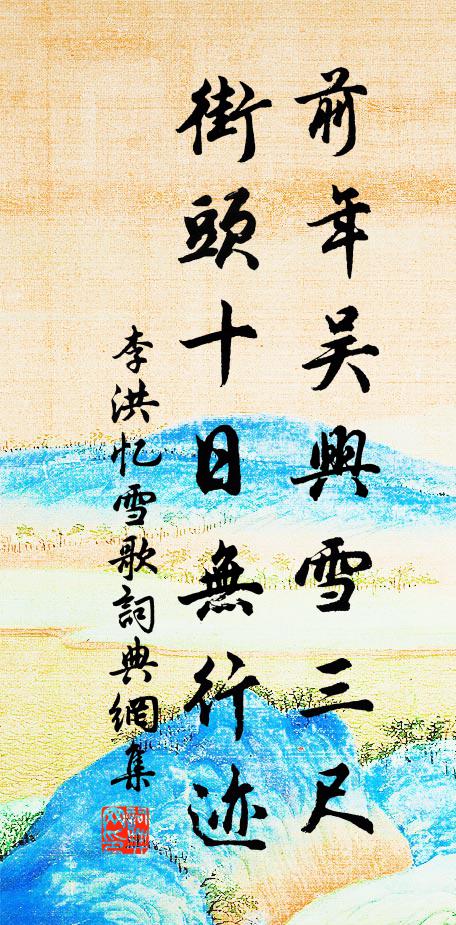 前年吴興雪三尺
街頭十日無行迹
李洪忆雪歌詞典網集